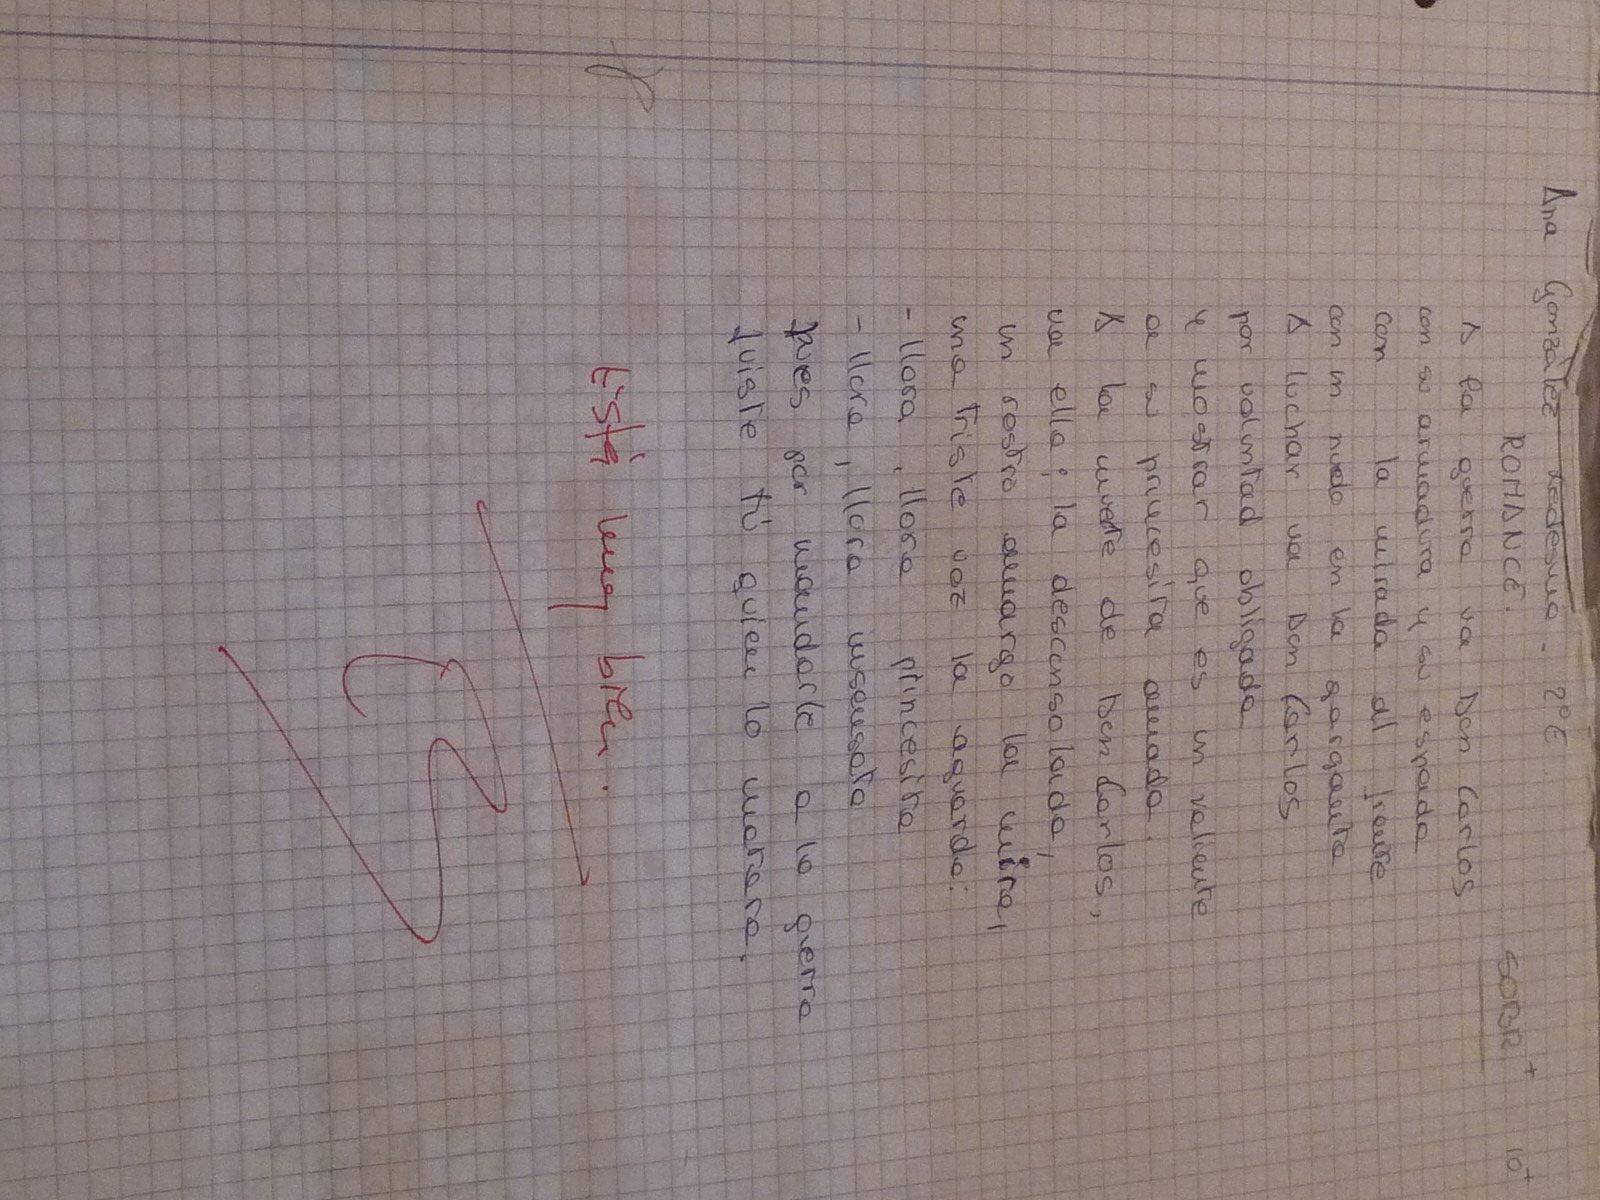 Ana González Ledesma - 2ºE.
ROMANCE.
SOBR+
10+
A la guerra va Don Carlos
con su armadura y su espada
con la mirada al frente
con un nudo en la garganta
A luchar va Don Carlos
por voluntad obligada
y mostrar que es un valiente
a su princesita amada.
A la muerte de Don Carlos,
va ella; la desconsolada,
un rostro amargo la mira,
una triste voz la aguarda:
- llora, llora princesita
- llora, llora insensata
pues por mandarle a la guerra
fuiste tú quien lo matara.
Está muy bien.